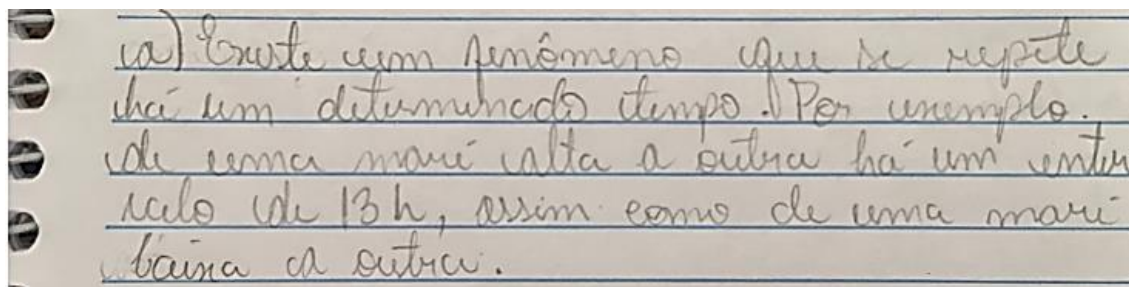 a) Existe um fenômeno que se repete
há um determinado tempo. Por exemplo.
de uma maré alta a outra há um inter
valo de 13 h, assim como de uma maré
baixa a outra.